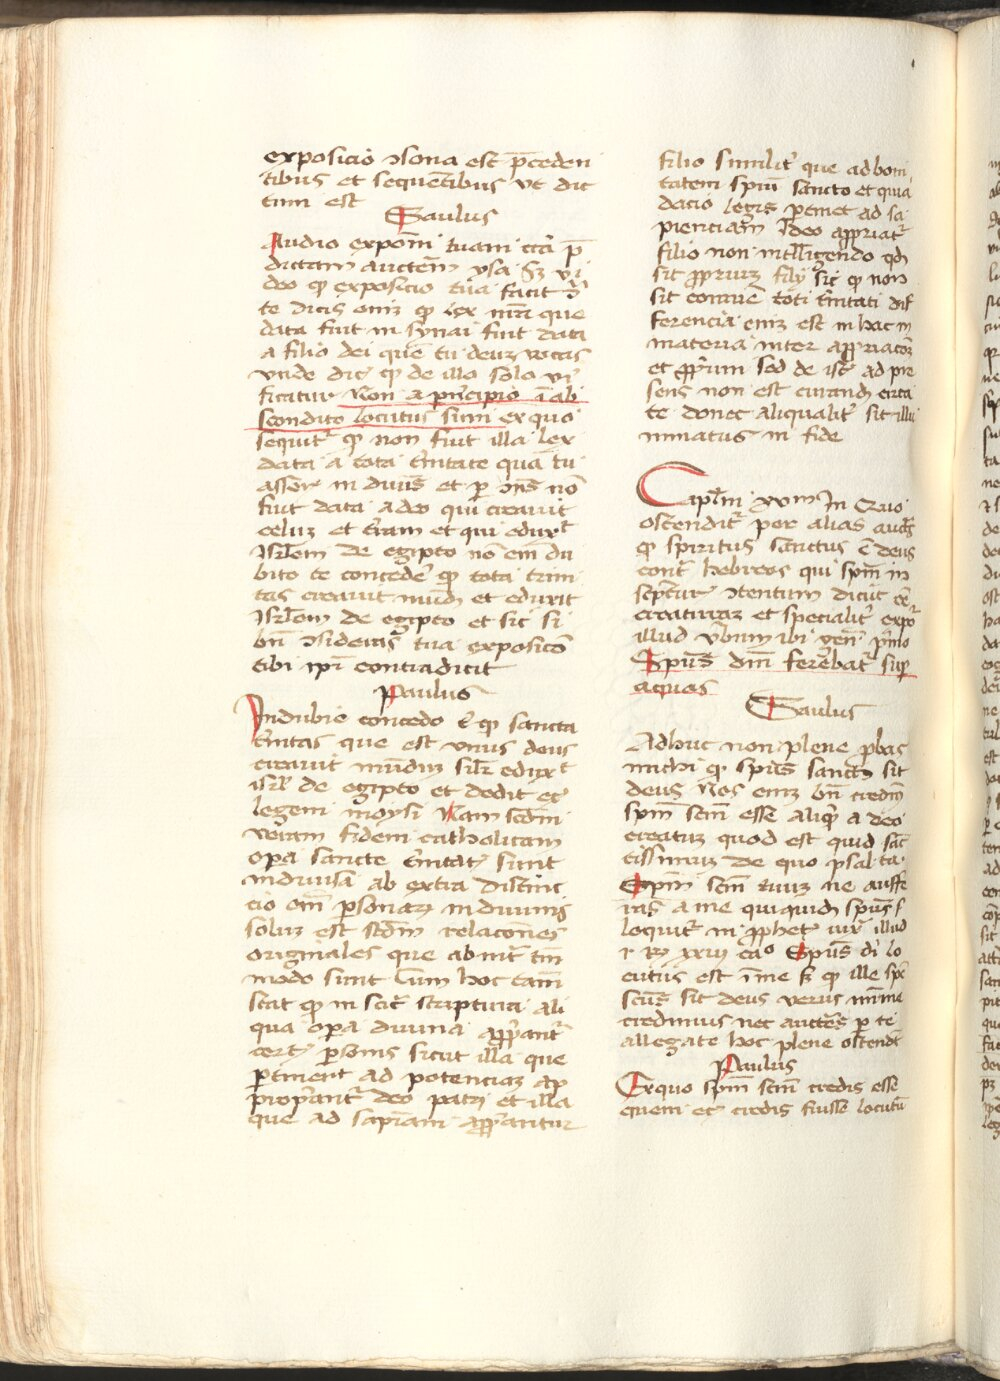 exposicio ɔsona est p̄ceden
tibus et sequēcibus vt dic
tum est
Saulus
Audio expoc̄m tuam cc̄a p̄
dictam auctem̄ ysa sꝫ vi
deo ꝙ exposicio tua facit ɔ̄
te dicis enim ꝙ lex nr̄a que
data fuit in synai fuit data
a filio dei quē tu deuꝫ vocas
vnde dic̄ ꝙ de illo solo v̄i
ficatur Non a p̄ncipio ī ab
scondito locutus sum ex quo
sequit᷑ ꝙ non fuit illa lex
data a tota t̄nitate quā tu
asser̄ in diuīs et p ɔn̄s nō
fuit data a deo qui creauit
celuꝫ et t̄ram et qui eduxᵗ
Isrl̄em de egipto nō em̄ du
bito te concedē ꝙ tota trini
tas creauit mūdū et eduxit
Isrl̄em de egipto et sic si
bn̄ ɔsidecas tua exposicō
tibi ip̄i contradicit
Paulus
Indubie concedo ꝙ sancta
t̄nitas que est vnus deus
creauit mūduꝫ sil̄r eduxᵗ
isrl̄ de egipto et dedit ec̄
legem moysi Nam scd̄m
veram fidem catholicam
opa sancte t̄nitatꝭ sunt
indiuisa ab extra distinc
cio em̄ psonaꝝ in diuinis
soluꝫ est scd̄m relacōnes
originales que ab int᷑ tm̄
modo sunt Cum hoc tam̄
stat ꝙ in sac᷑ scriptura ali
qua opa diuina apprīant᷑
certꝭ psonis sicut illa que
ptinent ad potenciaꝫ ap
propāant᷑ deo patri et illa
que ad sapīam apprīantur
filio similit᷑ que ad boni
tatem spiū sancto et quia
dacio legis ptinet ad sa
pienciam Ideo apprīat᷑
filio non intll̄igendo qd̄
sit ppriuꝫ filij sic ꝙ non
sit comūe toti t̄nitati dif
ferencia enim est in hac m
materia inter apprīacōꝫ
et pprium Sed de istꝭ ad pre
sens non est curandū circa
te donec aliqualit᷑ sit illu
minatus in fide
Capl̄m xvm In Quo
ostendit᷑ per alias auctꝭ
ꝙ spiritus sanctus ē deus
cont᷑ hebreos qui spm̄ in
sc̄ptur ɔtentum dicūt ēē
creaturaꝫ et specialit᷑ expo᷑
illud v̄bum ibi gen̄ pͥmo
Spūs dn̄i ferebat᷑ sup
aquas
Saulus
Adhuc non plene pbas
michi ꝙ spūs sanctus sit
deus Nos enim bn̄ credim̄
spm̄ scm̄ esse aliqͥd a deo
creatuꝫ quod est quid sāc
tissimuꝫ de quo psalta
Spm̄ scm̄ tuuꝫ ne auffe
ras a me quiquidē spūs s
loquit᷑ in pphetꝭ iux᷑ illud
r xxiij ca° Spūs dn̄i lo
cutus est ꝑ me sꝫ ꝙ ille spc̄
scūs sit deus verus mīme
credimus nec auctes p te
allegate hoc plene ostendt
Paulus
Exquo spm̄ scm̄ credis esse
quem ec̄ credis fuisse locutū